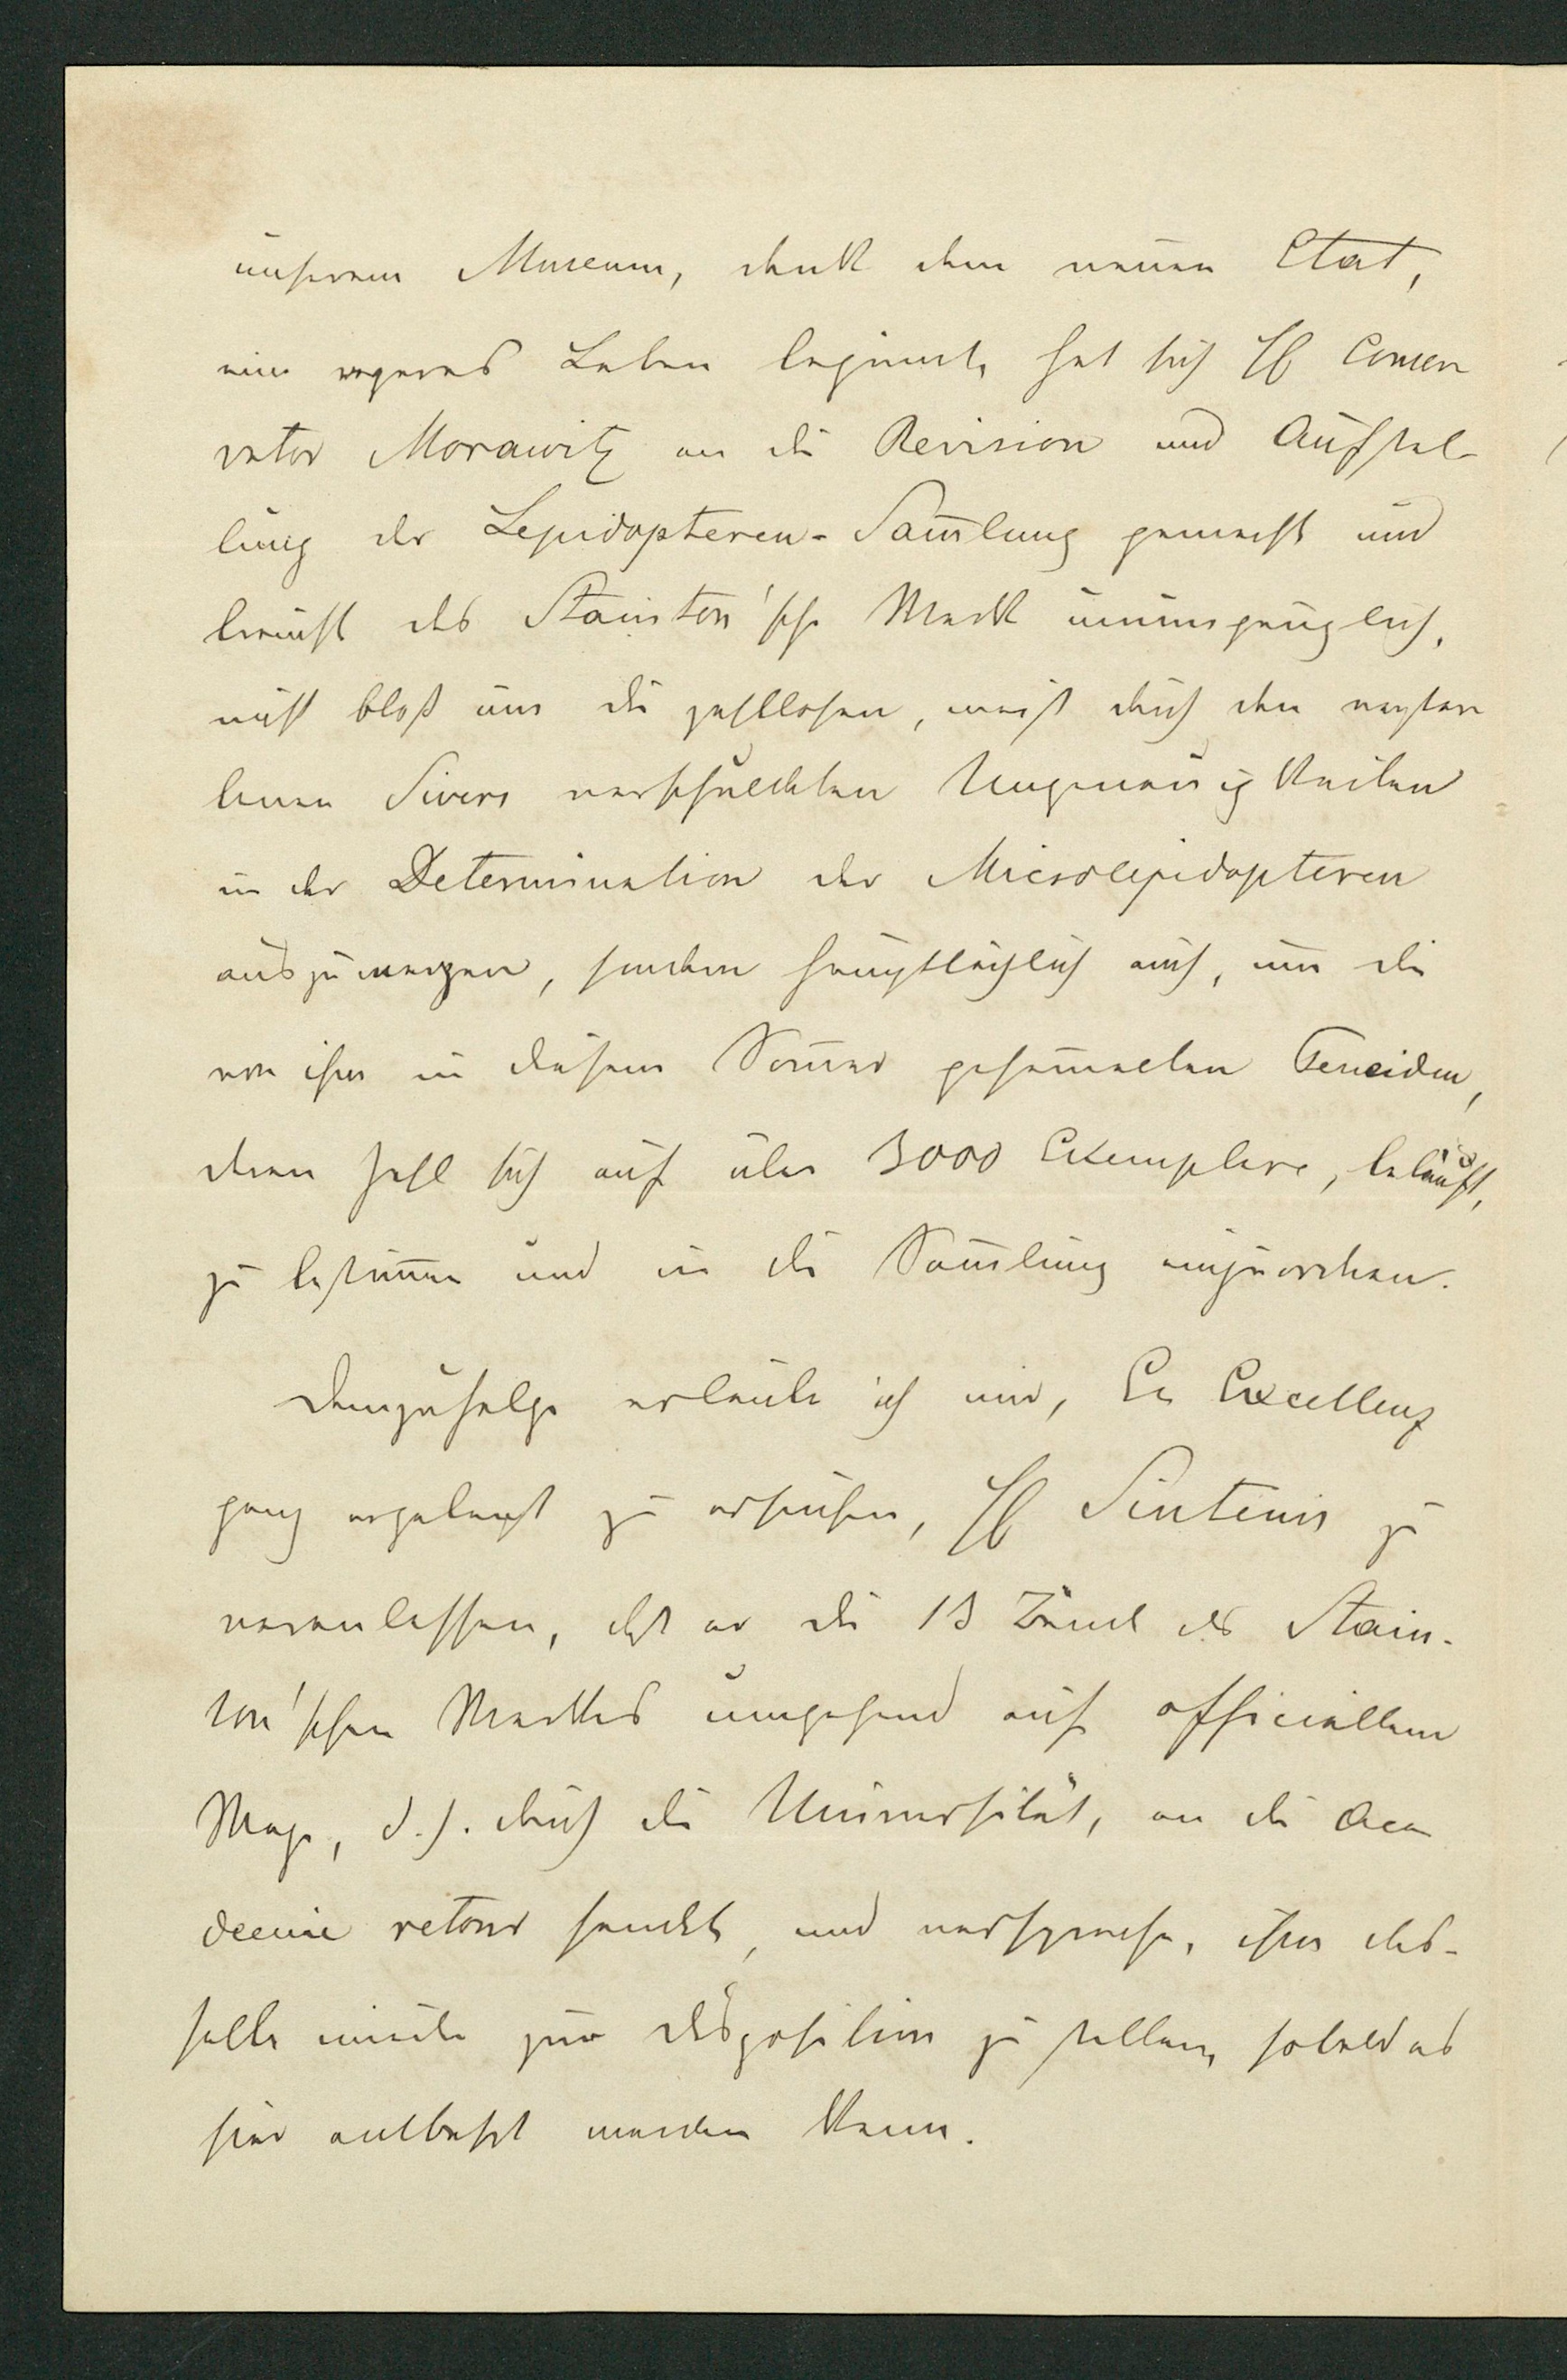 unserem Museum, dank dem neuen Etat,
ein regeres Leben beginnt, hat sich H Conser
vator Morawitz an die Revision und Aufstel-
lung der Lepidopteren-Sam̄lung gemacht und
braucht das Stainton'sche Werk unumgänglich,
nicht bloß um die zahllosen, meist durch den verstor
benen Sivers verschuldeten Ungenauigkeiten
in der Determination der Microlepidopteren
auszumerzen, sondern hauptsächlich auch, um die
von ihm in diesem Som̄er gesam̄elten Teneiden,
deren Zahl sich auf über 3000 Exemplare, beläuft,
zu bestim̄en und in die Sam̄lung einzuordnen.
Demzufolge erlaube ich mir, Ew Excellenz
ganz ergebenst zu ersuchen, H Sintenis zu
veranlassen, daß er die 13 Bände des Stain-
ton'schen Werkes umgehend auf officiellem
Wege, d.h. durch die Universität, an die Aca
demie retour sendet, und verspreche, ihm das-
selbe wieder zur Disposition zu stellen, sobald es
hier entbehrt werden kann.